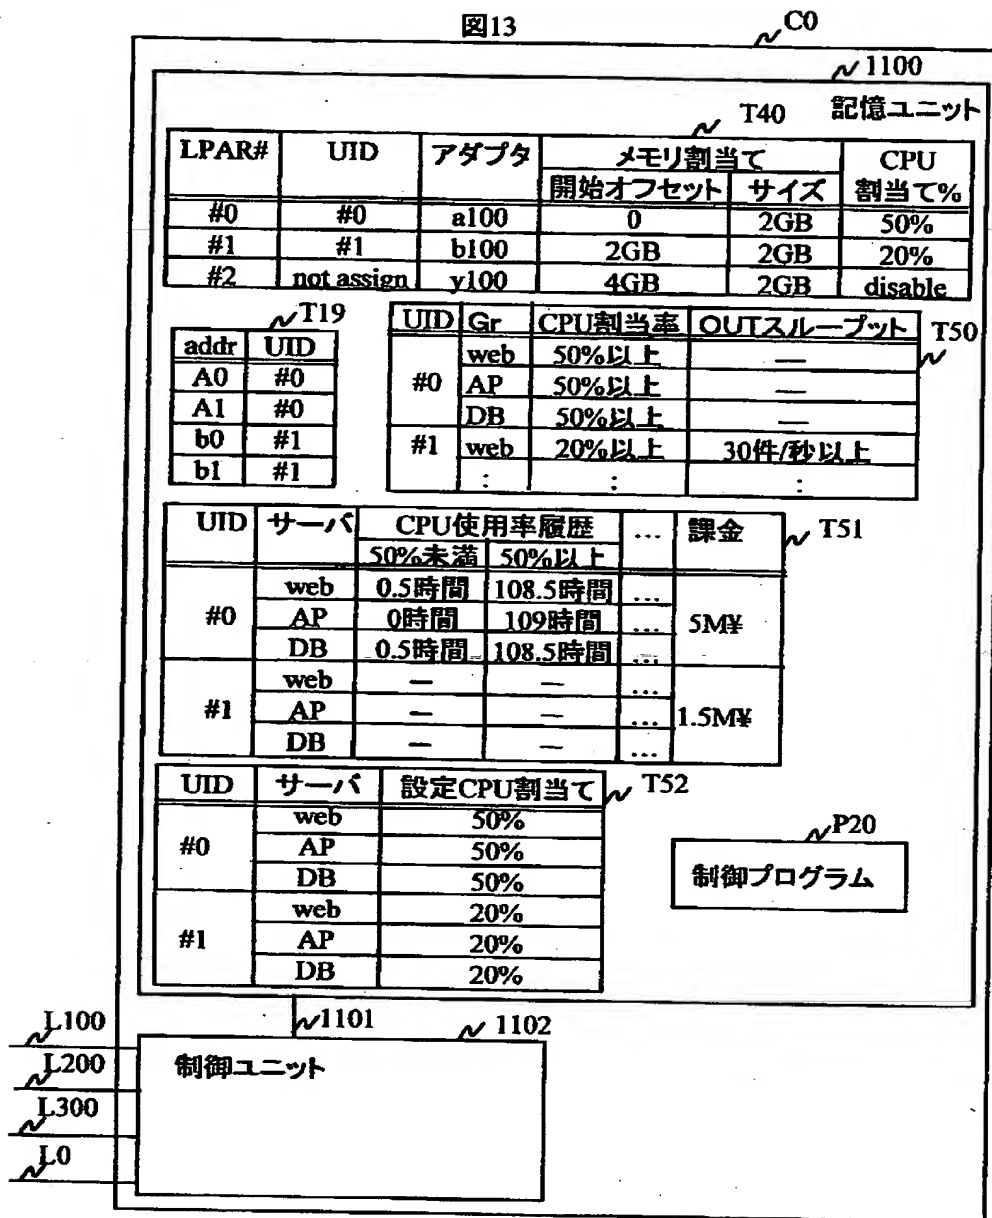 図13
C0
1100
記憶ユニット
T40
LPAR# UID アダプタ メモリ割当て CPU 割当て%
開始オフセット サイズ
#0 #0 a100 0 2GB 50%
#1 #1 b100 2GB 2GB 20%
#2 not assign y100 4GB 2GB disable
T19
addr UID
A0 #0
A1 #0
b0 #1
b1 #1
T50
UID Gr CPU割当率 OUTスループット
#0 web 50%以上 —
AP 50%以上 —
DB 50%以上 —
#1 web 20%以上 30件/秒以上
: : :
T51
UID サーバ CPU使用率履歴 … 課金
50%未満 50%以上
#0 web 0.5時間 108.5時間 … 5M¥
AP 0時間 109時間 …
DB 0.5時間 108.5時間 …
#1 web — — … 1.5M¥
AP — — …
DB — — …
T52
UID サーバ 設定CPU割当て
#0 web 50%
AP 50%
DB 50%
#1 web 20%
AP 20%
DB 20%
P20
制御プログラム
1101
1102
制御ユニット
L100
L200
L300
L0